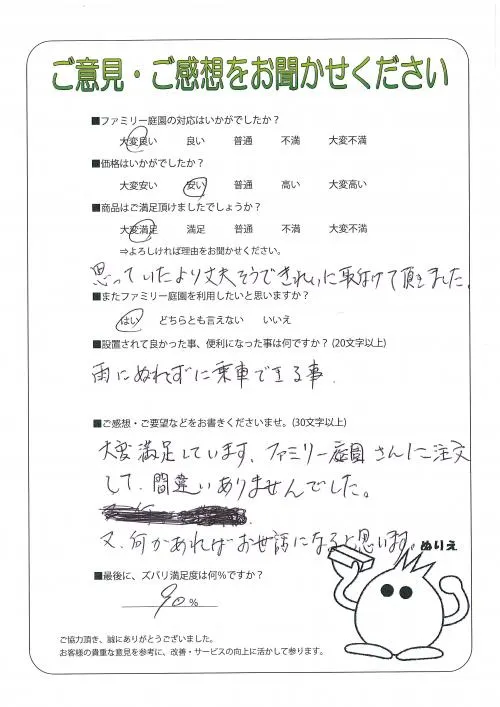 ご意見・ご感想をお聞かせください
■ファミリー庭園の対応はいかがでしたか？
大変良い 良い 普通 不満 大変不満
■価格はいかがでしたか？
大変安い 安い 普通 高い 大変高い
■商品はご満足頂けましたでしょうか？
大変満足 満足 普通 不満 大変不満
⇒よろしければ理由をお聞かせください。
思っていたより丈夫そうできれいに取付けて頂きました。
■またファミリー庭園を利用したいと思いますか？
はい どちらとも言えない いいえ
■設置されて良かった事、便利になった事は何ですか？(20文字以上)
雨にぬれずに乗車できる事.
■ご感想・ご要望などをお書きくださいませ。(30文字以上)
大変満足しています、ファミリー庭園さんに注文
して、間違いありませんでした。
又、何かあればお世話になると思います。
ぬりえ
■最後に、ズバリ満足度は何％ですか？
90 %
ご協力頂き、誠にありがとうございました。
お客様の貴重な意見を参考に、改善・サービスの向上に活かして参ります。